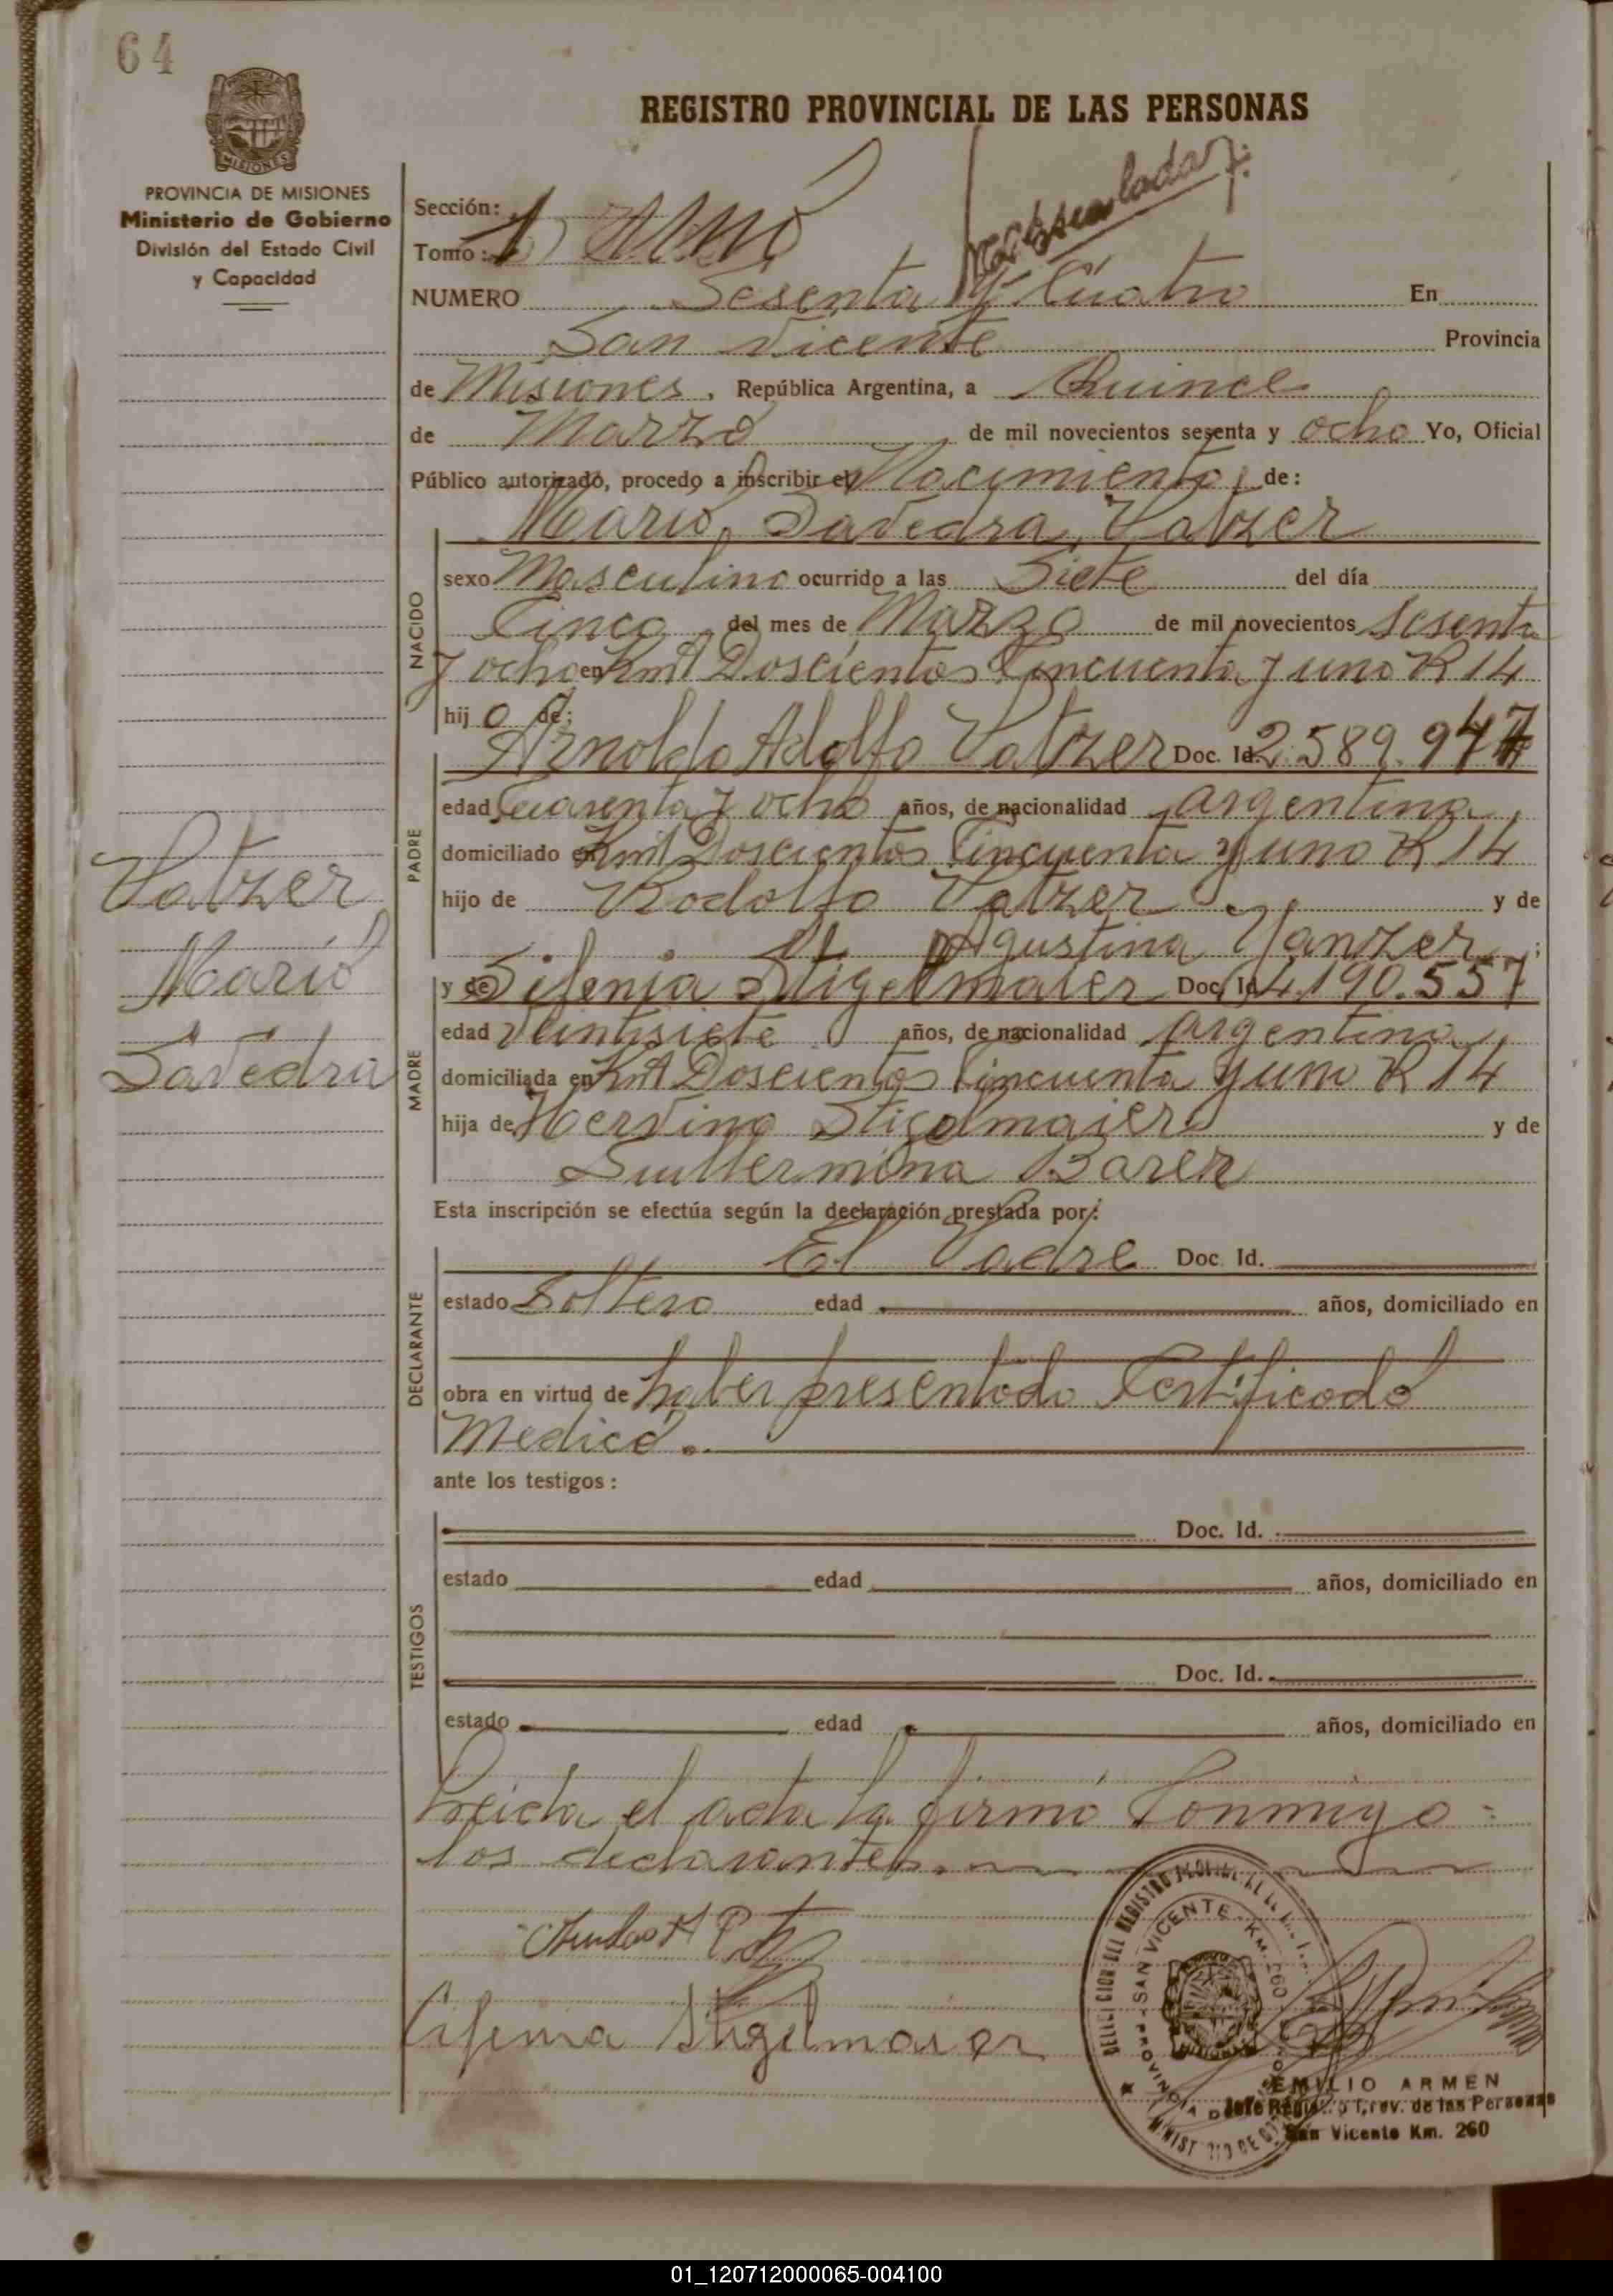 64
REGISTRO PROVINCIAL DE LAS PERSONAS
PROVINCIA DE MISIONES
Ministerio de Gobierno
División del Estado Civil
y Capacidad
Sección: 1
Tomo:
NUMERO Sesenta y Cuatro En
San Vicente Provincia
de Misiones, República Argentina, a Quince
de Marzo de mil novecientos sesenta y ocho Yo, Oficial
Público autorizado, procedo a inscribir el Nacimiento de:
Mario, Savedra,
sexo Masculino ocurrido a las Siete del día
Cinco del mes de Marzo de mil novecientos Sesenta
y ocho en Kmt Doscientos Cincuenta y uno R 14
hij o de:
Arnoldo Adolfo Doc. Id. 2.589.947
edad Cuarenta y ocho años, de nacionalidad argentina,
domiciliado en Kmt Doscientos Cincuenta y uno R 14
hijo de Rodolfo y de
Agustina Yanzer;
y de Sifenia Stigelmaier Doc. Id. 4.190.557
edad Veintisiete años, de nacionalidad argentina,
domiciliada en Kmt Doscientos Cincuenta y uno R 14
hija de Stigelmaier y de
Guillermina Barer
Mario
Savedra
NACIDO
PADRE
MADRE
Esta inscripción se efectúa según la declaración prestada por:
El Padre Doc. Id.
estado Soltero edad años, domiciliado en
obra en virtud de haber presentado Certificado
Medico.
DECLARANTE
ante los testigos:
Doc. Id.
estado edad años, domiciliado en
Doc. Id.
estado edad años, domiciliado en
TESTIGOS
Leida el acta la firmó Conmigo =
los declarantes.
Stigelmaier
SAN VICENTE - KM. 260
EMILIO ARMEN
Jefe Registro Prov. de las Personas
San Vicente Km. 260
01_120712000065-004100